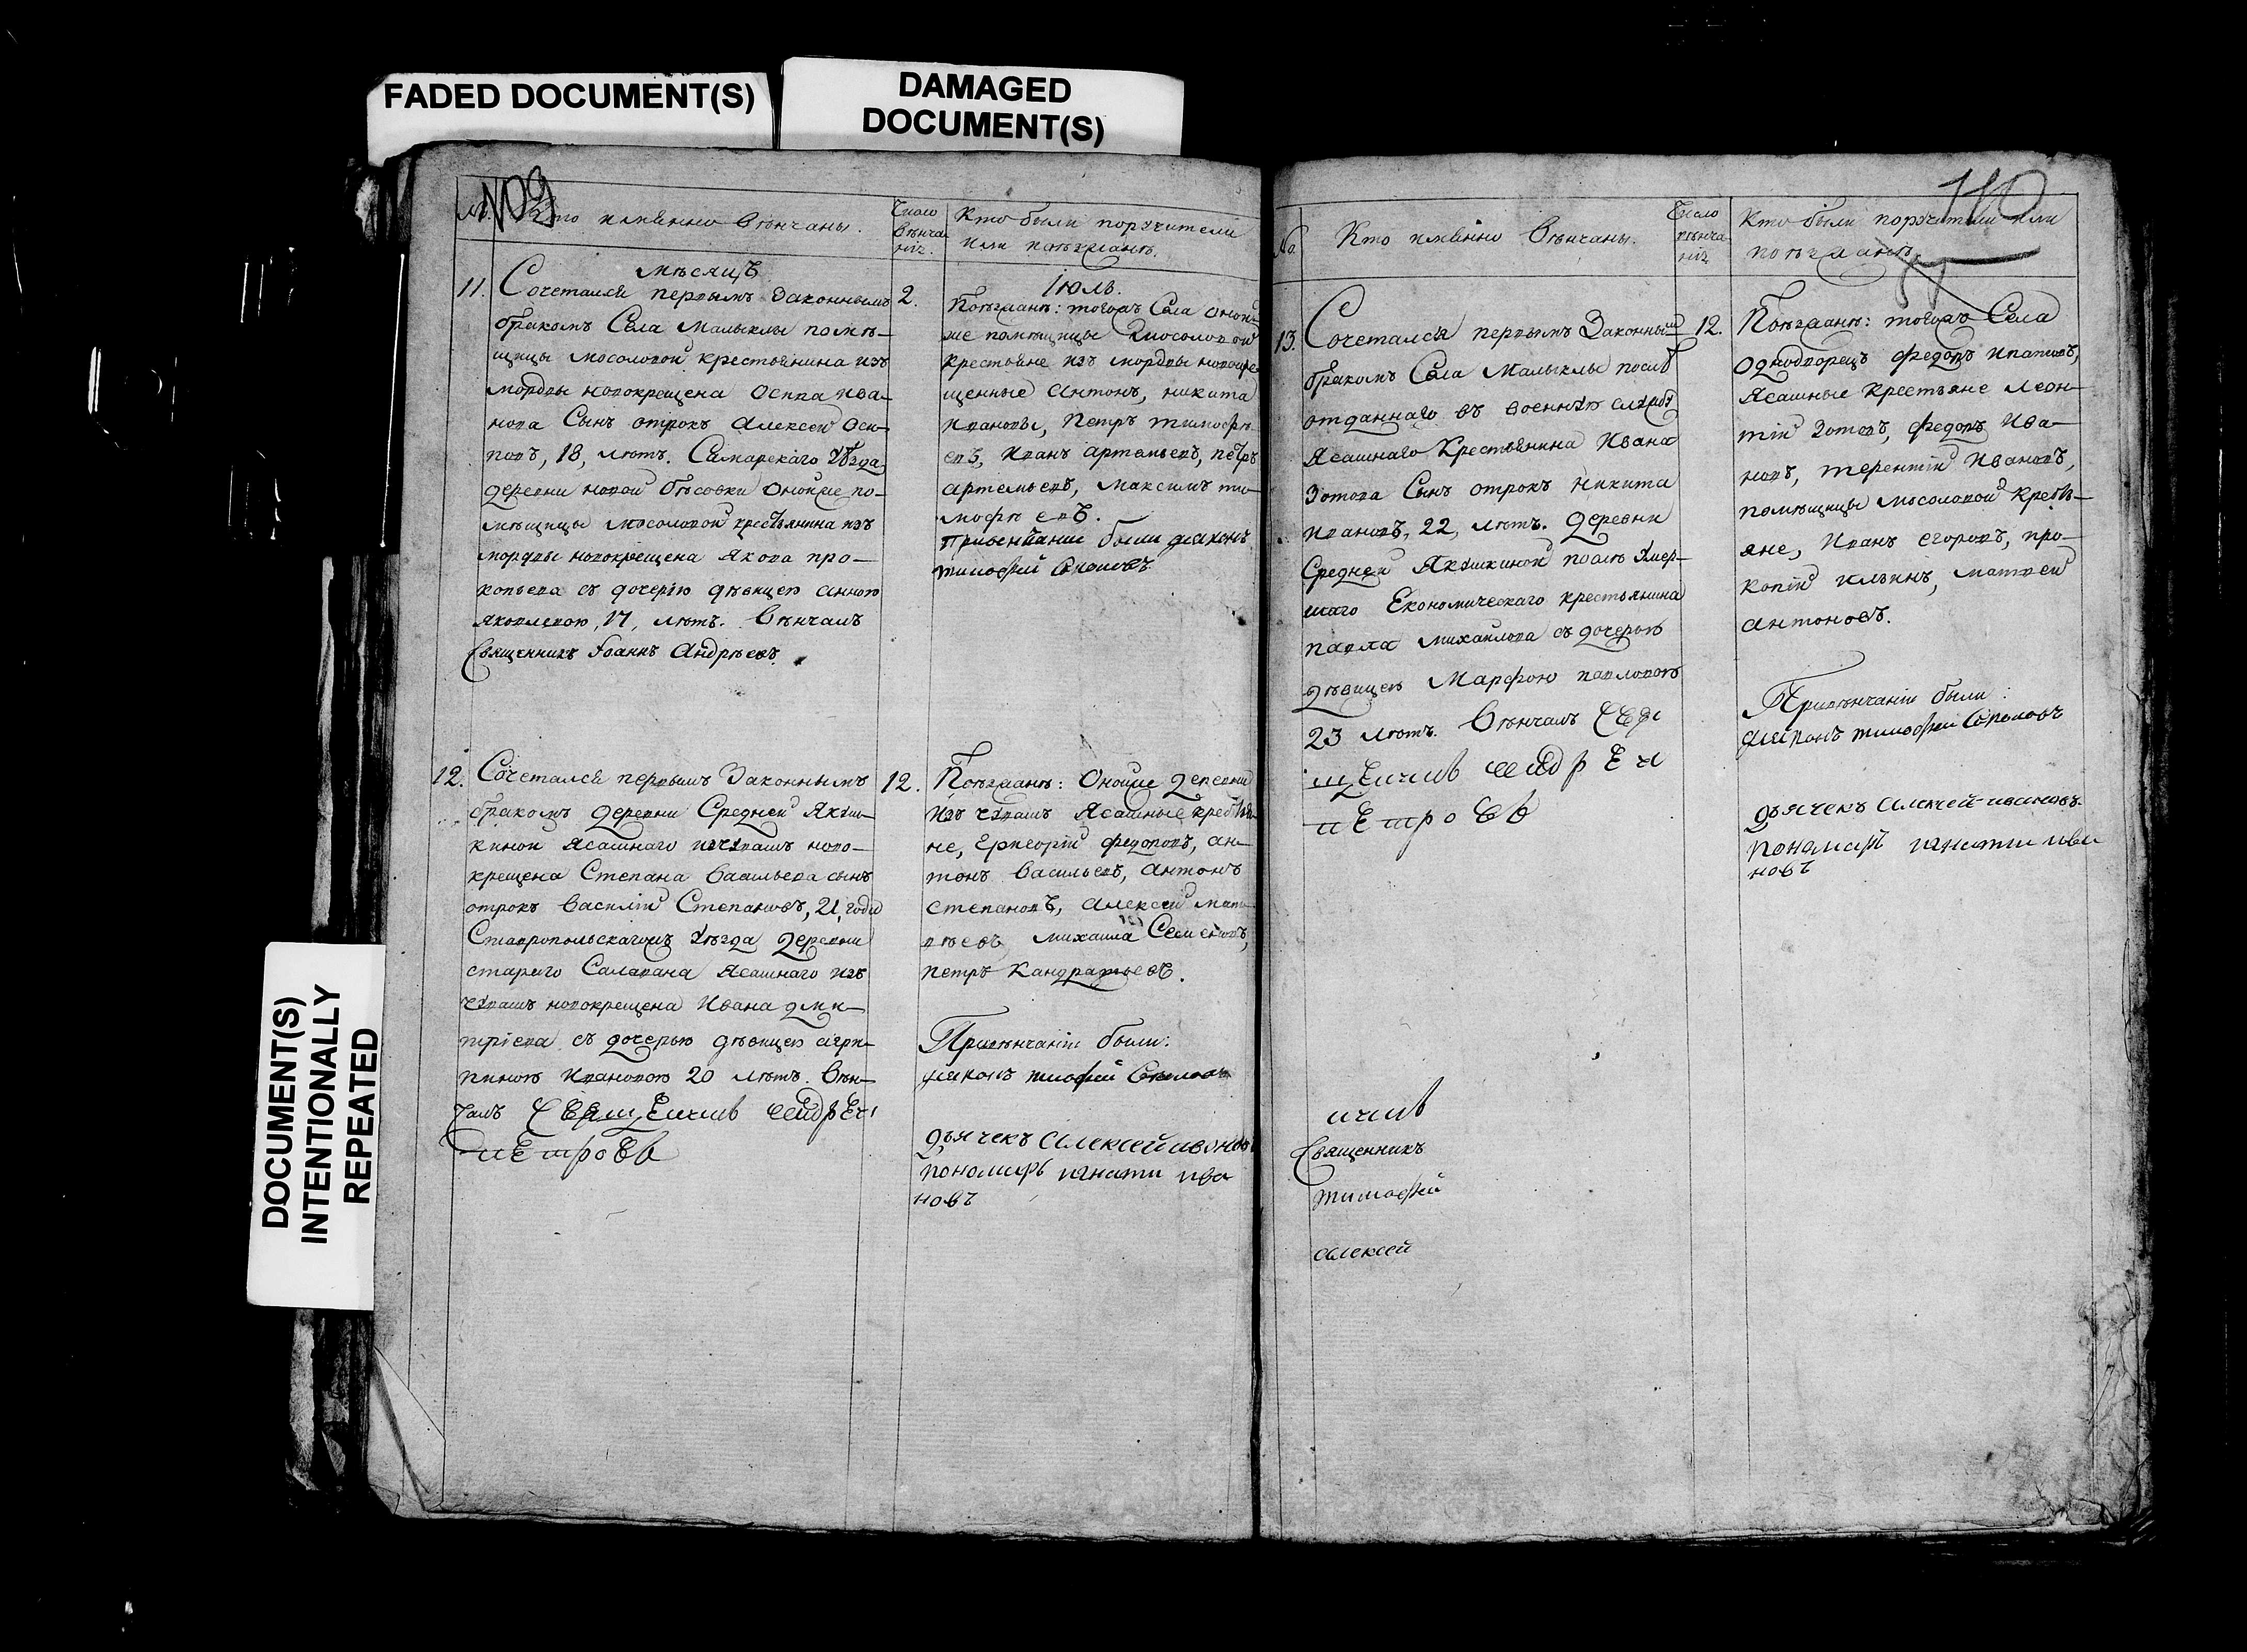 FADED DOCUMENT(S)
DAMAGED
DOCUMENT(S)
DOCUMENT(S)
INTENTIONALLY
REPEATED
109
№.
Кто имянно венчаны.
Число
венча
нія.
Кто были поручители
или поезжанѣ.
мѣсяцъ
Іюль.
11.
Сочетался первымъ Законнымъ
бракомъ Села Малыклы помѣ-
щицы мосоловой крестьянина изъ
мордвы новокрещена Осипа ива-
нова Сынъ отрокъ Алексей Оси-
повъ, 18, лѣтъ. Самарскаго уѣзда
деревни новой бѣсовки оной же по-
мѣщицы мосоловой крестьянина изъ
мордвы новокрещена Якова про-
копьева съ дочерію дѣвицею анною
яковлевою, 17, лѣтъ. Вѣнчалъ
Священникъ Іоаннъ Андрѣевъ.
2.
Поѣзжанѣ: тогожъ Села оной
же помѣщицы мосоловой
крестьяне изъ мордвы новокре
щенные антонъ, никита
ивановы, Петръ тимофѣ
евъ, иванъ артемьевъ, петръ
артемьевъ, максимъ ти-
мофѣевъ.
привенчание были диаконъ
тимофей
12.
Сочетался первымъ Законнымъ
бракомъ деревни Средней Якуш-
киной Ясашнаго изчувашъ ново-
крещена Степана Васильева сынъ
отрокъ Василій Степановъ, 21, года
Ставропольскагожъ уѣзда деревни
стараго Салавана Ясашнаго изъ
чувашъ новокрещена Ивана дми-
тріева съ дочерью дѣвицею агри-
пиною ивановою 20 лѣтъ. Вѣн-
чалъ СВЯщЕнникъ андрЕи
пЕтроВъ
12.
Поѣзжанѣ: Оной же деревни
изъ чувашъ Ясашные крестья-
не, Григорій федоровъ, ан-
тонъ Васильевъ, антонъ
степановъ, алексей мат-
вѣевъ михаила Семеновъ,
петръ Кандратьевъ.
Привѣнчаніи были:
диаконъ тимофей
дьячекъ алексей ивановъ
пономарь игнати ива
новъ
110
№.
Кто имянно Вѣнчаны.
Число
вѣнча
нія
Кто были поручители или
поѣзжанѣ
13.
Сочетался первымъ Законнымъ
бракомъ Села Малыклы послѣ
отданнаго въ военную службу
Ясашнаго Крестьянина Ивана
Зотова Сынъ отрокъ Никита
ивановъ, 22, лѣтъ. деревни
Средней Якушкиной послѣ умер-
шаго Економическаго крестьянина
павла михайлова съ дочерью
дѣвицею Марфою павловою
23 лѣтъ. Вѣнчалъ СВЯ
щЕнникъ андрЕи
пЕтроВъ
12.
Поѣзжанѣ: тогожъ Села
Однодворецъ федоръ ипатовъ,
Ясашные Крестьяне леон-
тій Зотовъ, федоръ Ива-
новъ, терентій Ивановъ,
помѣщицы мосоловой кресть-
яне, Иванъ егоровъ, про-
копій ильинъ, матвей
антоновъ.
Привѣнчаніи были:
диаконъ тимофеи
дьячекъ алексей ивановъ
пономарь игнати ива
новъ
Священникъ
тимофей
алексей